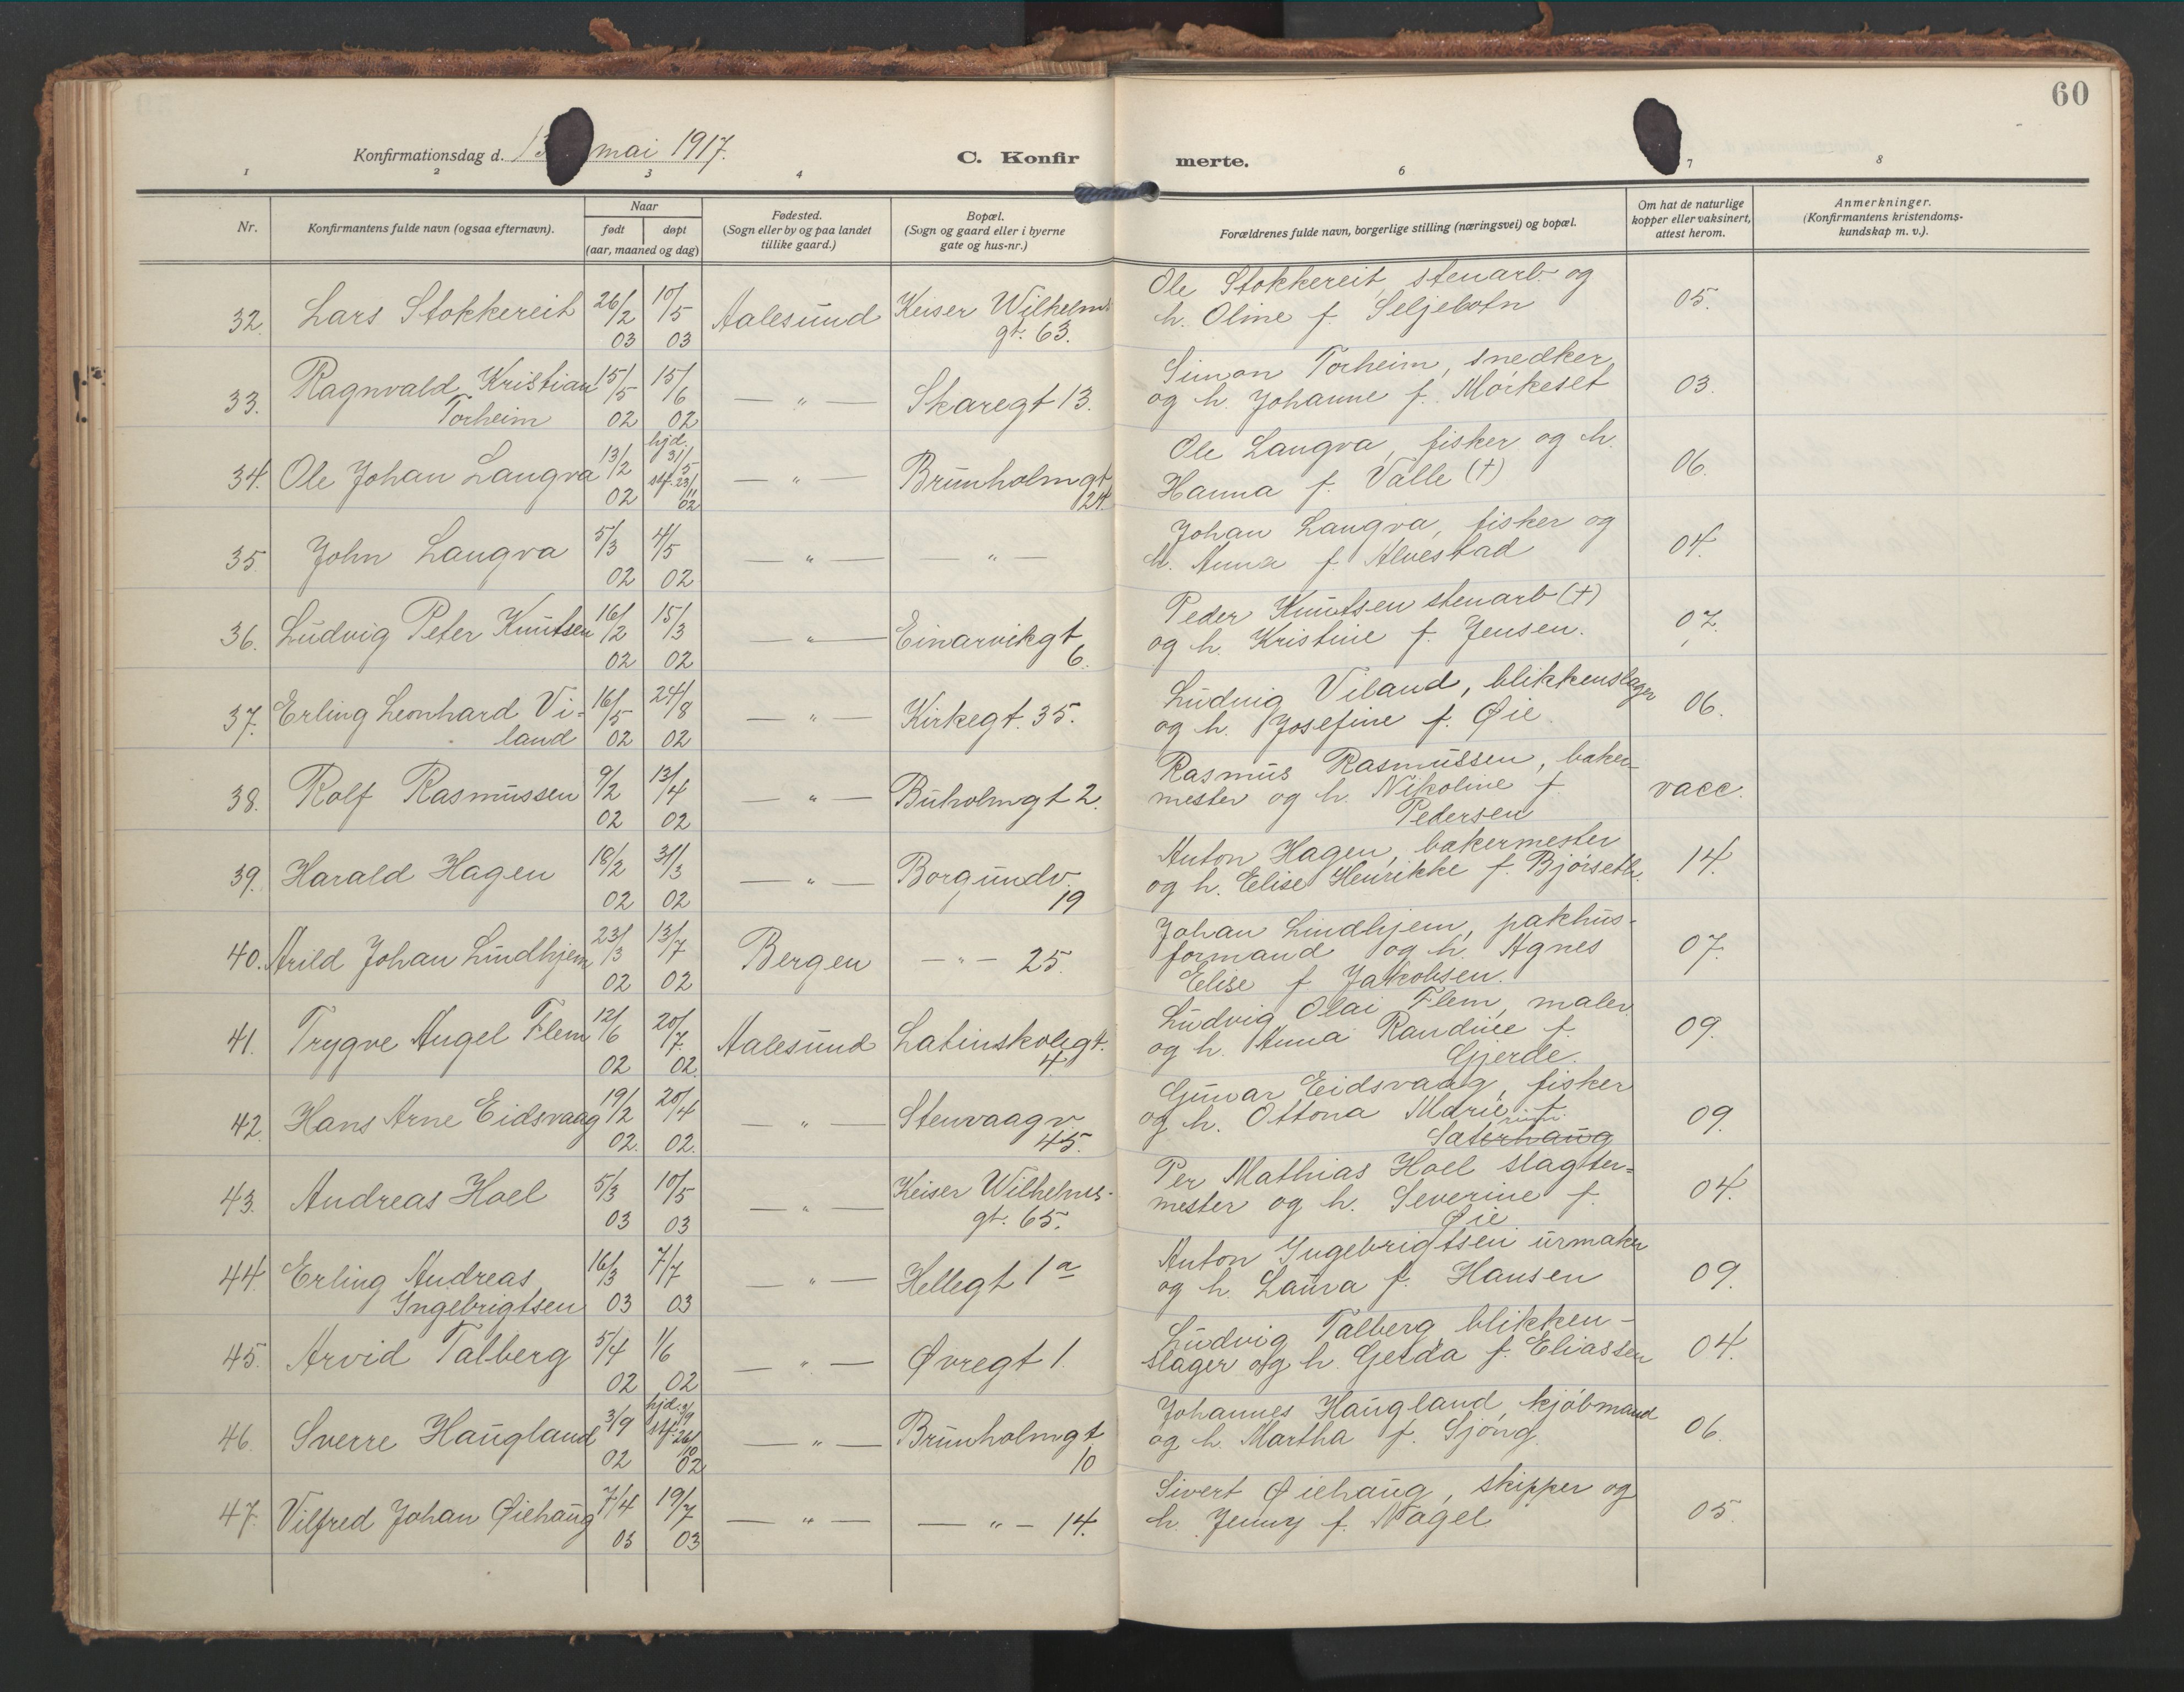 60
Konfirmationsdag d. 13 mai 1917.
C. Konfirmerte.
1 2 3 4 6 7 8
Nr.
Konfirmantens fulde navn (ogsaa efternavn).
Naar
født døpt
(aar, maaned og dag)
Fødested.
(Sogn eller by og paa landet
tillike gaard.)
Bopæl.
(Sogn og gaard eller i byerne
gate og hus-nr.)
Forældrenes fulde navn, borgerlige stilling (næringsvei) og bopæl.
Om hat de naturlige
kopper eller vaksinert,
attest herom.
Anmerkninger.
(Konfirmantens kristendoms-
kundskap m. v.).
32. Lars Stokkereit 26/2 03 10/5 03 Aalesund Keiser Wilhelms
gt. 63.
Ole Stokkereit, stenarb. og
h. Oline f. Seljebotn
05.
33. Ragnvald Kristian
Torheim
15/5 02 15/6 02 — " — Skaregt 13.
Simon Torheim, snedker,
og h. Johanne f. Mørkeset
03.
34. Ole Johan Langva 13/2 02 hjd. 31/5 stf. 23/11 02 — " — Brunholmgt
24.
Ole Langva, fisker og h.
Hanna f. Valle (†)
06.
35. John Langva 5/3 02 4/5 02 — " — " —
Johan Langva, fisker og
h. Anna f. Alvestad
04.
36. Ludvig Peter Knutsen 16/2 02 15/3 02 — " — Einarvikgt
6.
Peder Knutsen stenarb (†)
og h. Kristine f. Jensen.
07.
37. Erling Leonhard Vi-
land
16/5 02 24/8 02 — " — Kirkegt. 35.
Ludvig Viland, blikkenslager
og h. Josefine f. Øie.
06.
38. Rolf Rasmussen 9/2 02 13/4 02 — " — Buholmgt 2.
Rasmus Rasmussen, baker-
mester og h. Nikoline f.
Pedersen
vacc.
39. Harald Hagen 18/2 02 31/3 02 — " — Borgundv.
19
Anton Hagen, bakermester
og h. Elise Henrikke f. Bjørseth.
14.
40. Arild Johan Lindhjem 23/3 02 13/7 02 Bergen — " — 25.
Johan Lindhjem, pakhus-
formand og h. Agnes
Elise f. Jakobsen.
07.
41. Trygve Angel Flem 12/6 02 20/7 02. Aalesund Latinskolegt.
4.
Ludvig Olai Flem, maler
og h. Anna Randine f.
Gjerde.
09.
42. Hans Arne Eidsvaag 19/2 02. 20/4 02. — " — Stenvaagv.
45.
Gunnar Eidsvaag, fisker
og h. Ottona Marie f.
Saterhaug
09.
43. Andreas Hoel 5/3 03 10/5 03 — " — Keiser Wilhelms-
gt. 65.
Per Mathias Hoel slagter-
mester og h. Severine f.
Øie
04.
44. Erling Andreas
Ingebrigtsen
16/3 03 7/7 03 — " — Hellegt 1a
Anton Ingebrigtsen urmaker
og h. Laura f. Hansen
09.
45. Arvid Talberg 5/4 02 1/6 02 — " — Øvregt 1.
Ludvig Talberg blikken-
slager og h. Gerda f. Eliassen
04.
46. Sverre Haugland 3/9 02 hjd. 9/9 stf. 26/10 02 — " — Brunholmgt
10
Johannes Haugland, kjøbmand
og h. Martha f. Sjong.
06.
47. Vilfred Johan Øiehaug 7/4 03 19/7 03 — " — — " — 14.
Sivert Øiehaug, skipper og
h. Jenny f. Nagel
05.